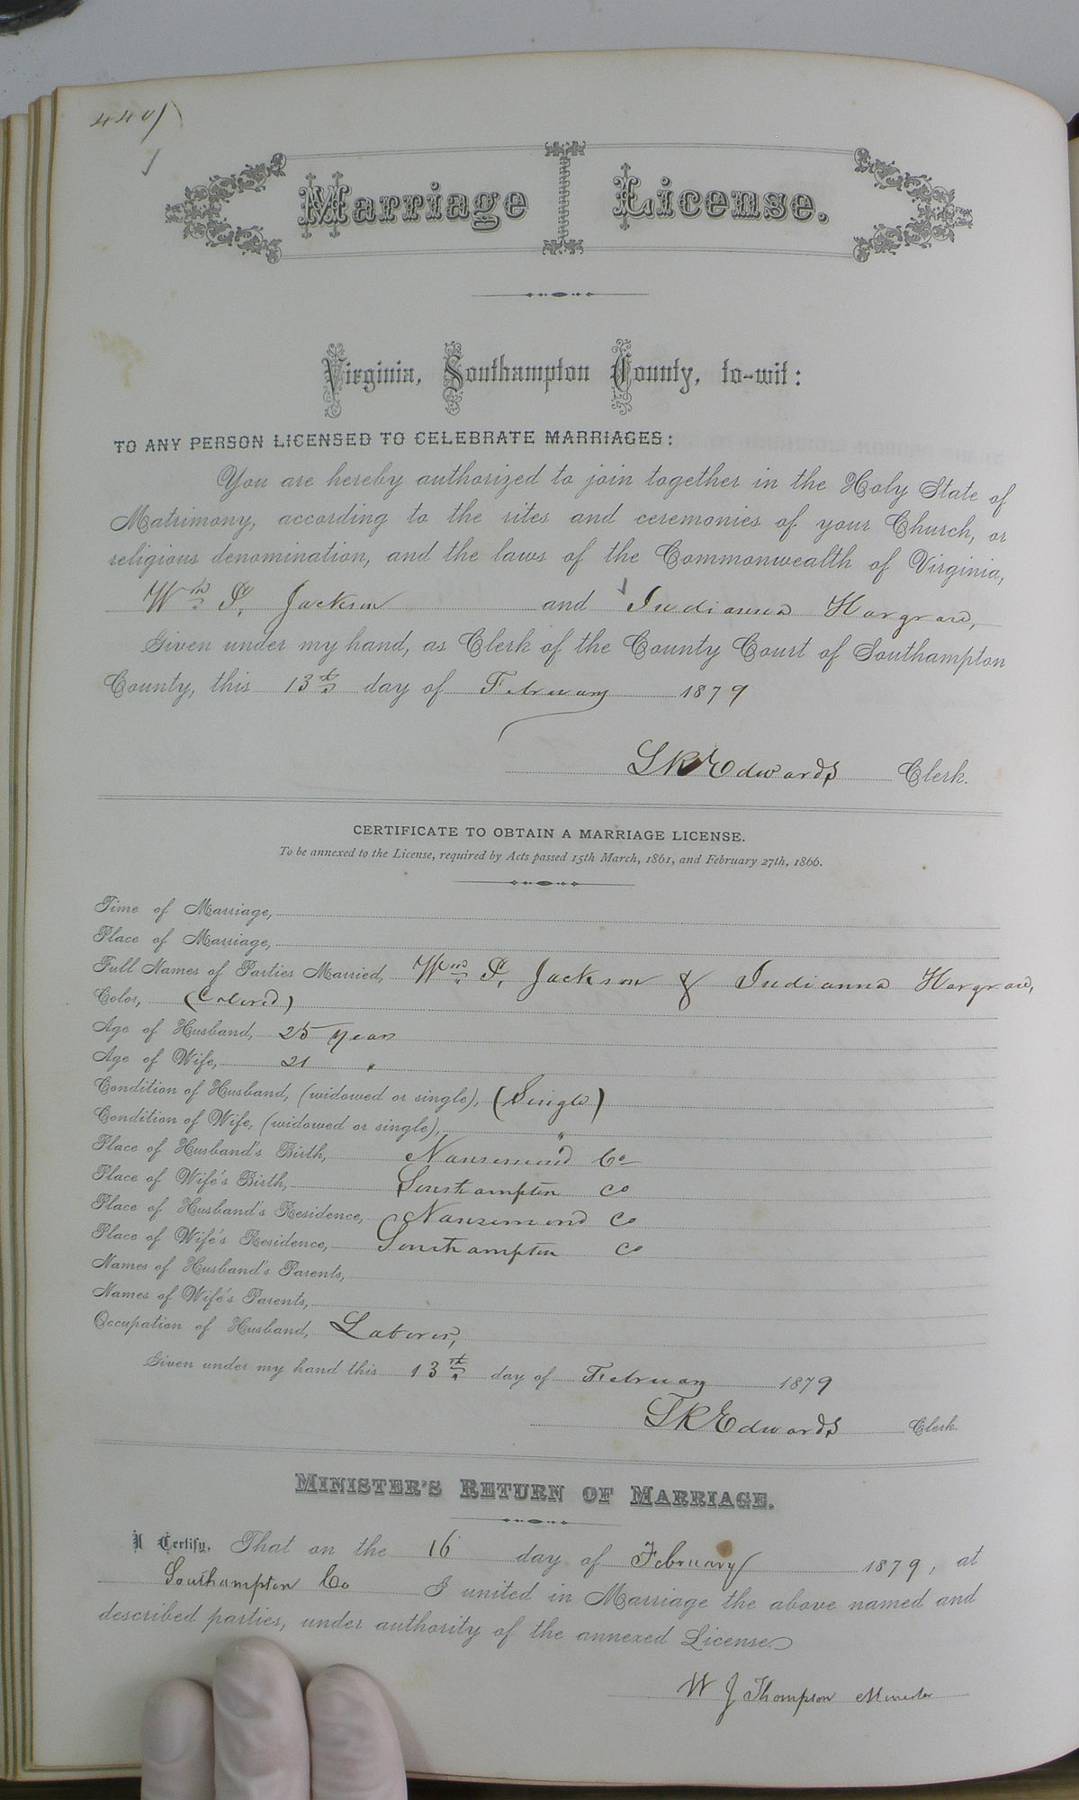 440
Marriage License.
Virginia, Southampton County, to-wit:
TO ANY PERSON LICENSED TO CELEBRATE MARRIAGES:
You are hereby authorized to join together in the Holy State of
Matrimony, according to the rites and ceremonies of your Church, or
religious denomination, and the laws of the Commonwealth of Virginia,
Wm P. Jackson and Indianna Hargrave,
Given under my hand, as Clerk of the County Court of Southampton
County, this 13th day of February 1879
L R Edwards Clerk.
CERTIFICATE TO OBTAIN A MARRIAGE LICENSE.
To be annexed to the License, required by Acts passed 15th March, 1861, and February 27th, 1866.
Time of Marriage,
Place of Marriage,
Full Names of Parties Married, Wm P. Jackson & Indianna Hargrave,
Color, (Colored)
Age of Husband, 25 years
Age of Wife, 21 "
Condition of Husband, (widowed or single), (Single)
Condition of Wife, (widowed or single), "
Place of Husband's Birth, Nansemond Co
Place of Wife's Birth, Southampton Co
Place of Husband's Residence, Nansemond Co
Place of Wife's Residence, Southampton Co
Names of Husband's Parents,
Names of Wife's Parents,
Occupation of Husband, Laborer,
Given under my hand this 13th day of February 1879
L R Edwards Clerk.
MINISTER'S RETURN OF MARRIAGE.
I Certify, That on the 16 day of February 1879, at
Southampton Co I united in Marriage the above named and
described parties, under authority of the annexed License.
W J Thompson Minister